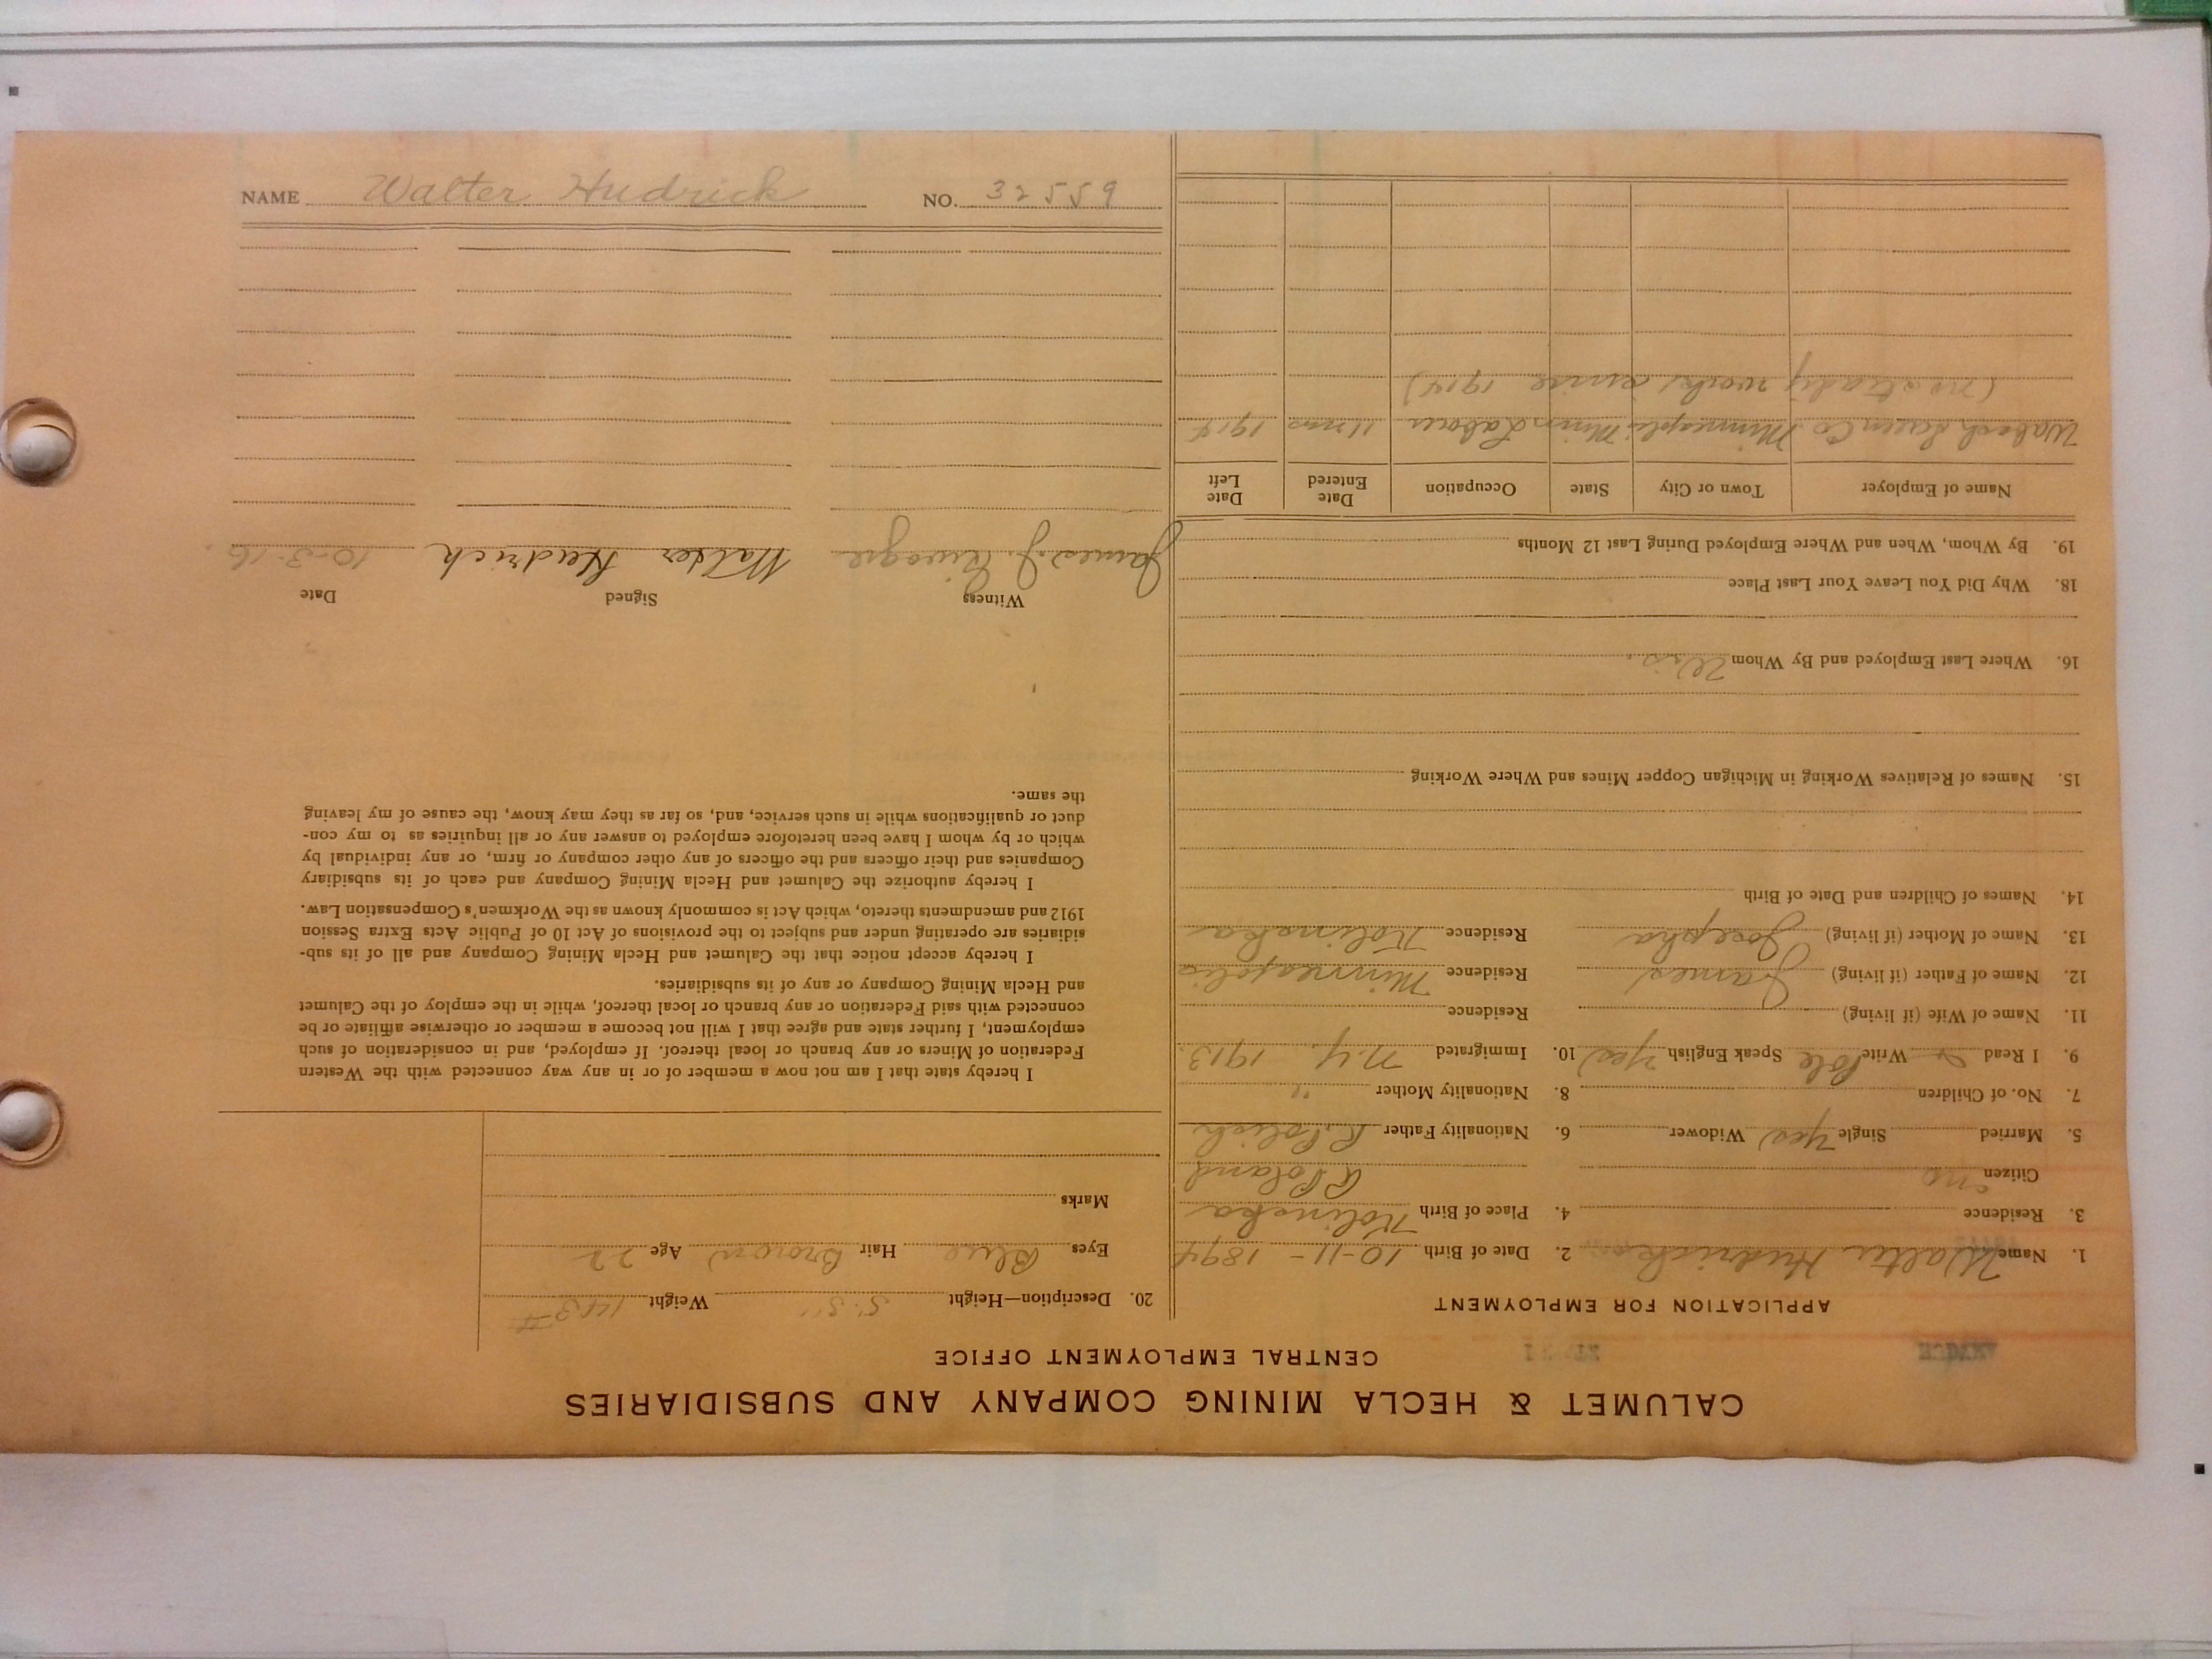 CALUMET & HECLA MINING COMPANY AND SUBSIDIARIES
CENTRAL EMPLOYMENT OFFICE
APPLICATION FOR EMPLOYMENT
1. Name Walter Hudrick 2. Date of Birth 10-11-1894
3. Residence 4. Place of Birth Kolinska
Citizen no R Poland
5. Married Single Yes Widower 6. Nationality Father R. Polish
7. No. of Children 8. Nationality Mother "
9. I Read & Write Pole Speak English Yes 10. Immigrated N.Y. 1913
11. Name of Wife (if living) Residence
12. Name of Father (if living) James Residence Minneapolis
13. Name of Mother (if living) Josepha Residence Kolinska
14. Names of Children and Date of Birth
15. Names of Relatives Working in Michigan Copper Mines and Where Working
16. Where Last Employed and By Whom
18. Why Did You Leave Your Last Place
19. By Whom, When and Where Employed During Last 12 Months
Name of Employer Town or City State Occupation Date Entered Date Left
Co. Minneapolis Minn. Labour 11 mos 1914
(no steady work since 1914)
20. Description—Height 5' 5" Weight 143 #
Eyes Blue Hair Brown Age 22
Marks
I hereby state that I am not now a member of or in any way connected with the Western
Federation of Miners or any branch or local thereof. If employed, and in consideration of such
employment, I further state and agree that I will not become a member or otherwise affiliate or be
connected with said Federation or any branch or local thereof, while in the employ of the Calumet
and Hecla Mining Company or any of its subsidiaries.
I hereby accept notice that the Calumet and Hecla Mining Company and all of its sub-
sidiaries are operating under and subject to the provisions of Act 10 of Public Acts Extra Session
1912 and amendments thereto, which Act is commonly known as the Workmen's Compensation Law.
I hereby authorize the Calumet and Hecla Mining Company and each of its subsidiary
Companies and their officers and the officers of any other company or firm, or any individual by
which or by whom I have been heretofore employed to answer any or all inquiries as to my con-
duct or qualifications while in such service, and, so far as they may know, the cause of my leaving
the same.
Witness Signed Date
James J. Walter Hudrick 10-3-16.
NAME Walter Hudrick NO. 32559